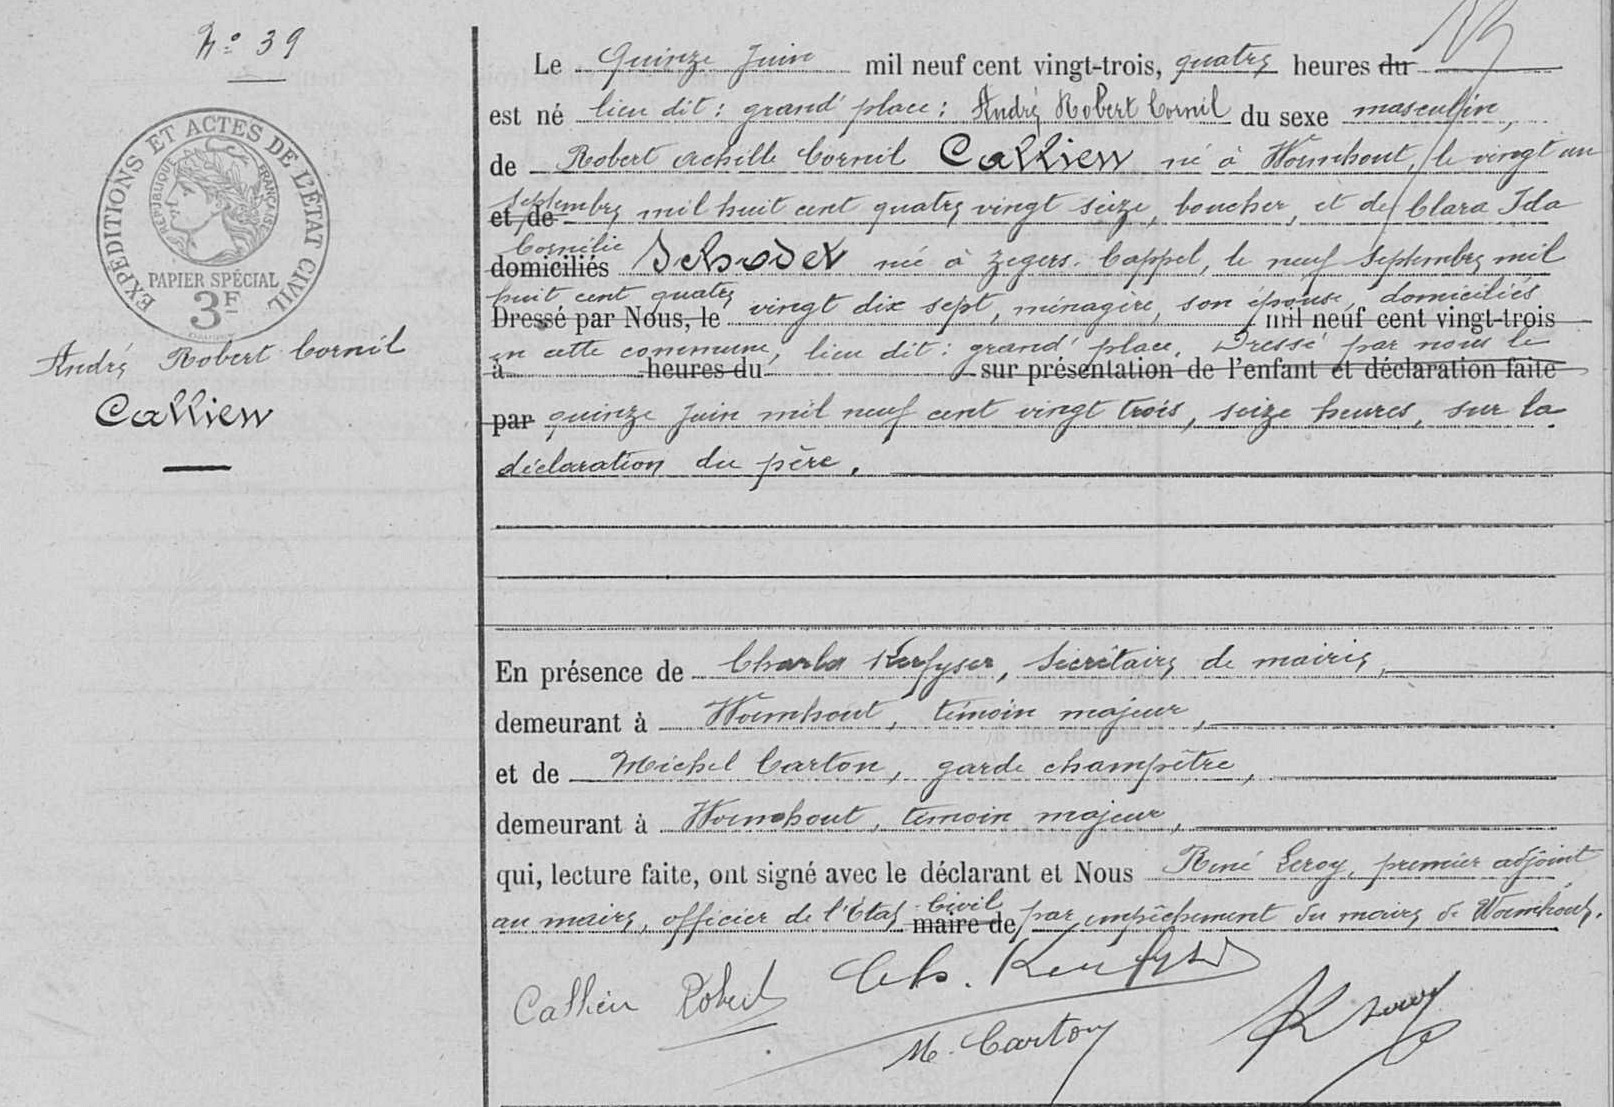 N:° 39
EXPÉDITIONS ET ACTES DE L'ÉTAT CIVIL
RÉPUBLIQUE FRANÇAISE
PAPIER SPÉCIAL
3F
André Robert Cornil
Callieu
Le Quinze Juin mil neuf cent vingt-trois, quatre heures du
est né lieu dit: grand' place: André Robert Cornil du sexe masculin,
de Robert Achille Cornil Callieu né à Wormhout, le vingt un
et de septembre mil huit cent quatre vingt seize, boucher, et de Clara Ida
domiciliés Cornélie Schodet née à Zegers-Cappel, le neuf Septembre mil
Dressé par Nous, le huit cent quatre vingt dix sept, ménagère, son épouse, domiciliés mil neuf cent vingt-trois
en cette commune, lieu dit: grand' place. Dressé par nous le
à heures du sur présentation de l'enfant et déclaration faite
par quinze Juin mil neuf cent vingt trois, seize heures, sur la
déclaration du père.
En présence de Charles Kerfyser, Secrétaire de mairie,
demeurant à Wormhout, témoin majeur,
et de Michel Carton, garde champêtre,
demeurant à Wormhout, témoin majeur,
qui, lecture faite, ont signé avec le déclarant et Nous René Leroy, premier adjoint
au maire, officier de l'Etat Civil maire de par empêchement du maire de Wormhout.
Callieu Robert Ch. Kerfyser
M. Carton R Leroy